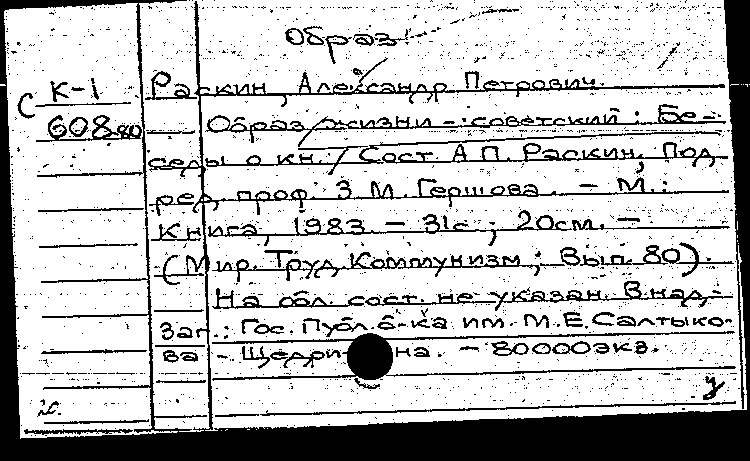 Образ
С К-1
608.80
Раскин, Александр Петрович.
Образ жизни - советский : Бе-
седы о кн. / Сост. А.П. Раскин; Под
ред. проф. З.М. Гершова. - М.:
Книга, 1983. - 31с.; 20см. -
(Мир. Труд. Коммунизм; Вып. 80).
На обл. сост. не указан. В над-
заг.: Гос. Публ. б-ка им. М.Е.Салтыко-
ва - Щедрина. - 80000экз.
20.
у